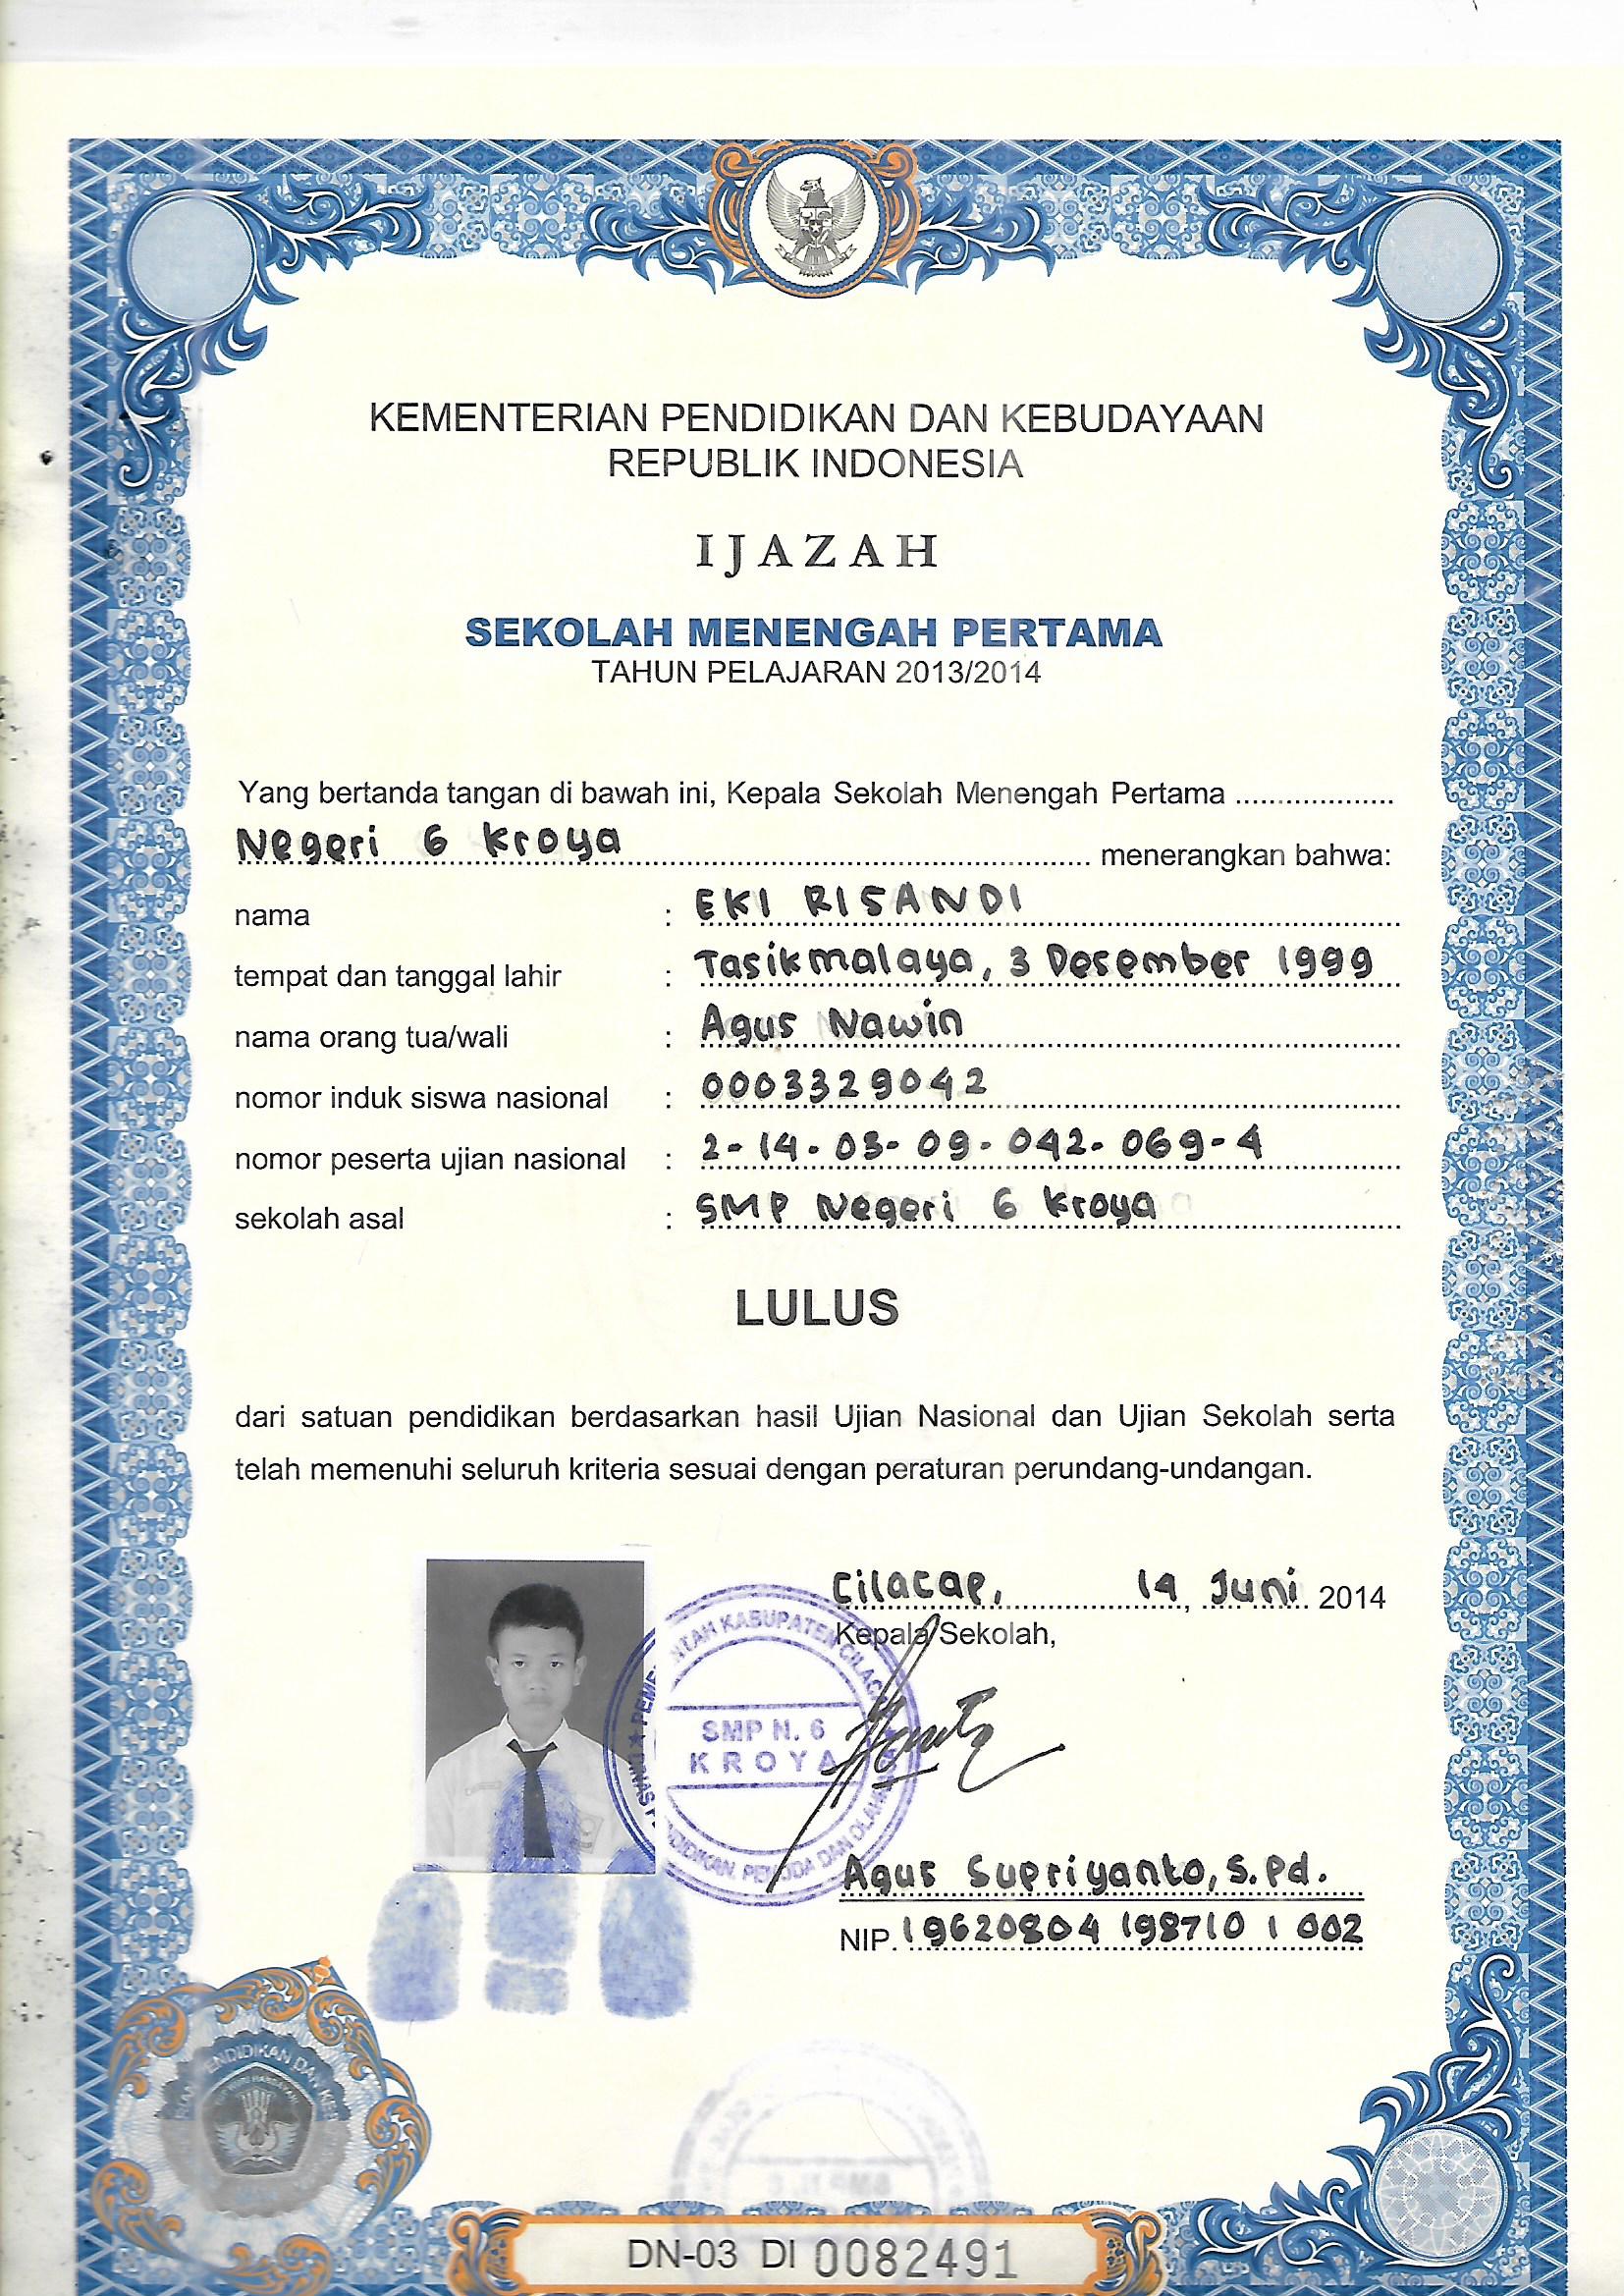 KEMENTERIAN PENDIDIKAN DAN KEBUDAYAAN
REPUBLIK INDONESIA
IJAZAH
SEKOLAH MENENGAH PERTAMA
TAHUN PELAJARAN 2013/2014
Yang bertanda tangan di bawah ini, Kepala Sekolah Menengah Pertama ...................
Negeri 6 Kroya menerangkan bahwa:
nama : EKI RISANDI
tempat dan tanggal lahir : Tasikmalaya, 3 Desember 1999
nama orang tua/wali : Agus Nawin
nomor induk siswa nasional : 0003329042
nomor peserta ujian nasional : 2-14-03-09-042-069-4
sekolah asal : SMP Negeri 6 Kroya
LULUS
dari satuan pendidikan berdasarkan hasil Ujian Nasional dan Ujian Sekolah serta
telah memenuhi seluruh kriteria sesuai dengan peraturan perundang-undangan.
Cilacap, 14, Juni 2014
Kepala Sekolah,
KABUPATEN CILACAP
SMP N. 6
KROYA
PEMUDA DAN OLAHRAGA
Agus Supriyanto, S.Pd.
NIP. 19620804 198710 1 002
DN-03 DI 0082491